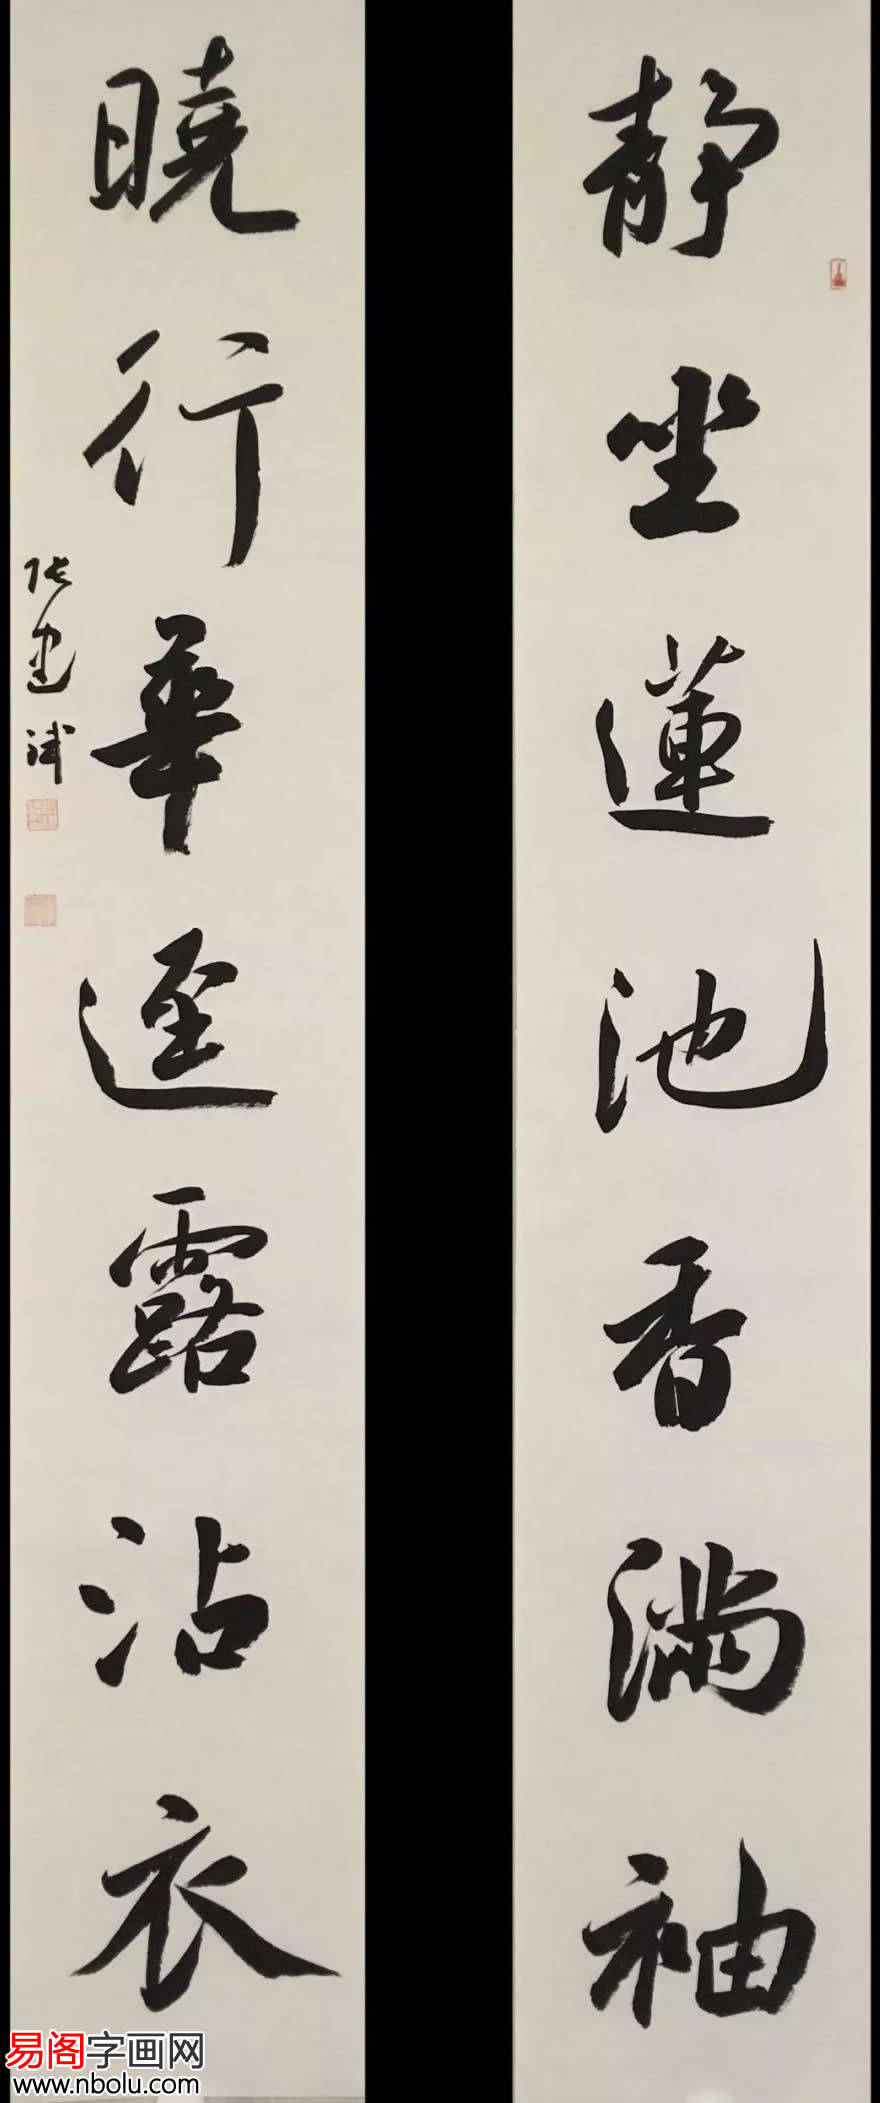 静坐蓮池香満袖
曉行華逕露沾衣
张建斌
易阁字画网
www.nbolu.com